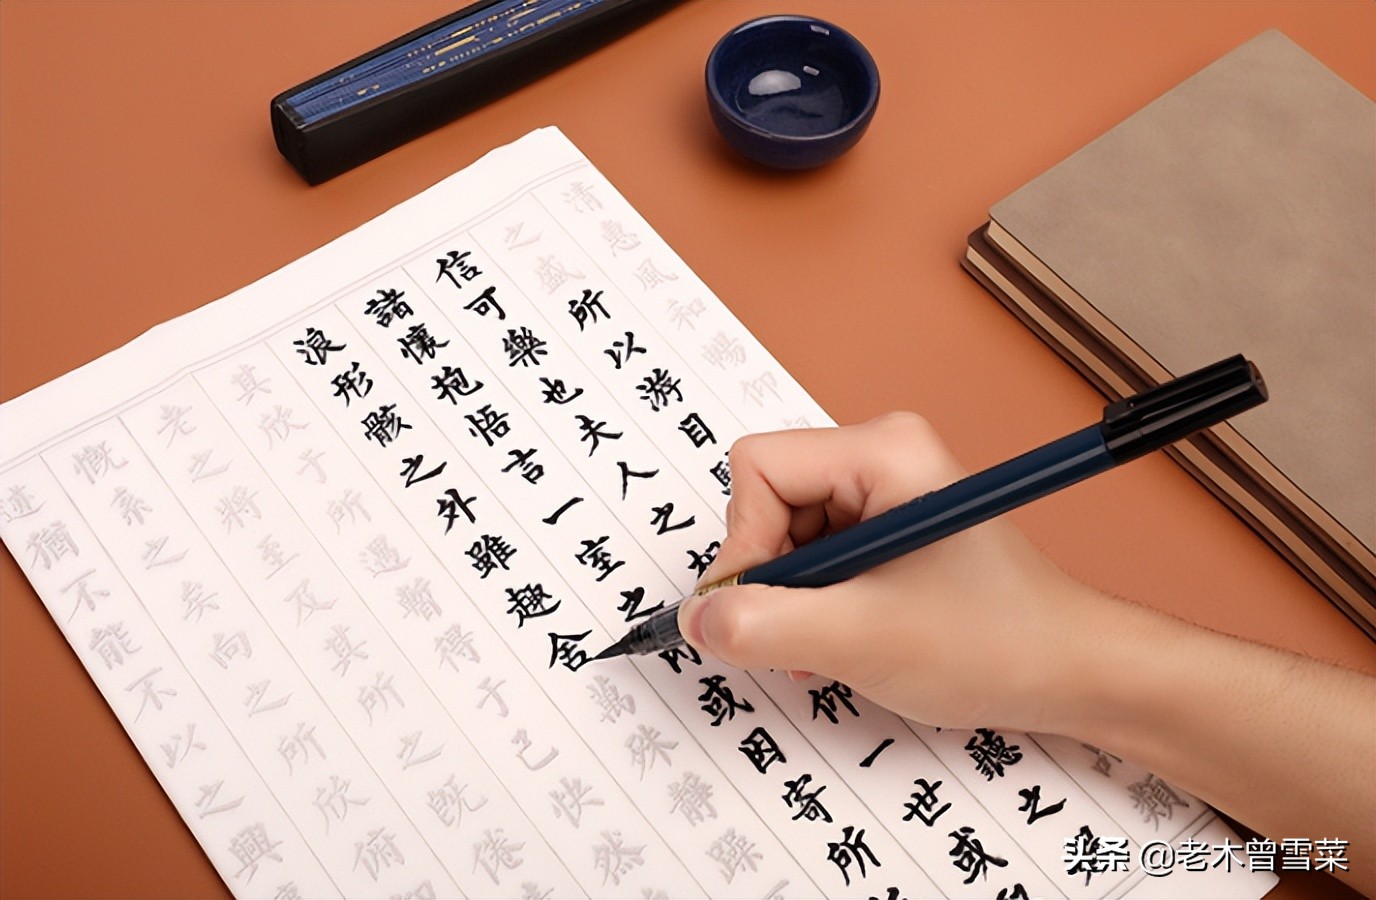 清惠風和暢仰類
之盛所以游目聽之
信可樂也夫人之仰一世或
諸懷抱悟言一室之內或因寄所
浪形骸之外雖趣舍萬殊靜躁
其欣于所遇暫得于己快然
老之將至及其所之既倦
慨系之矣向之所欣俯仰
迹猶不能不以之興懷
头条 @老木曾雪菜